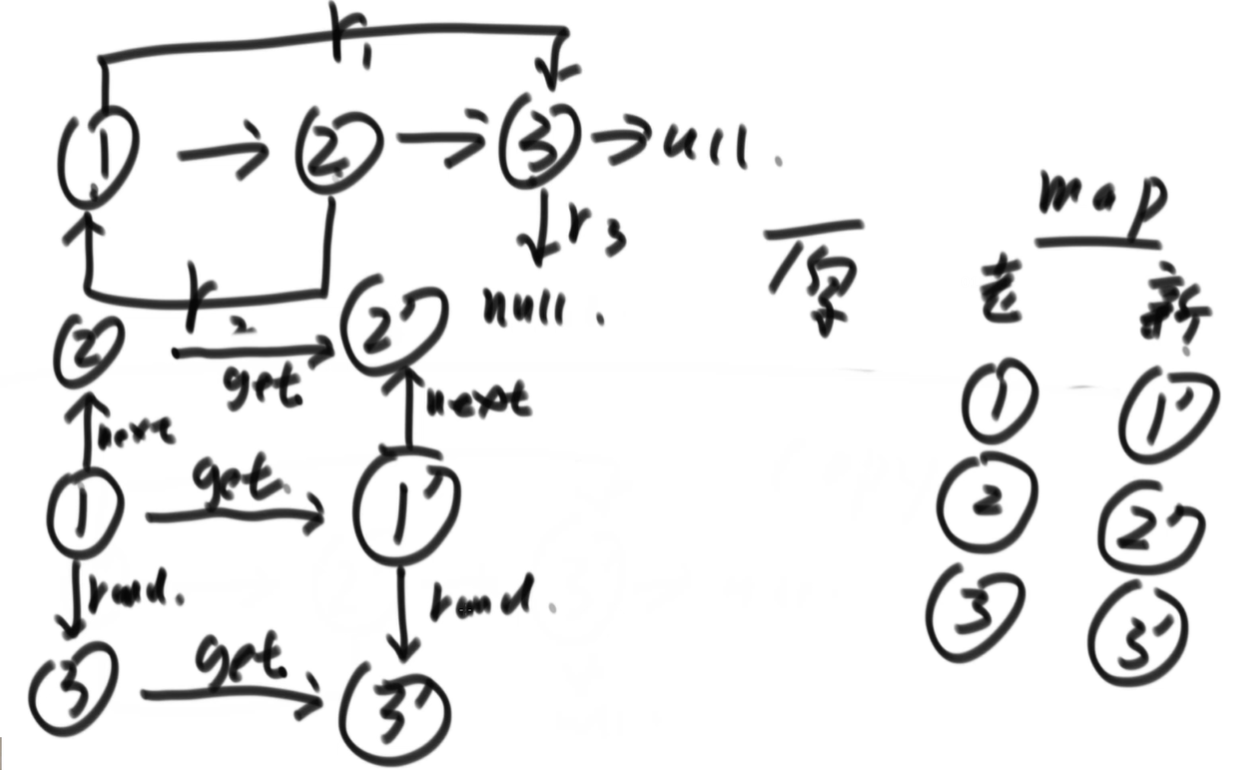 r1
1 2 3 null.
r3
r2
null.
map
老 新
2 get 2'
next next
1 get 1'
rand. rand.
3 get 3'
1 1'
2 2'
3 3'